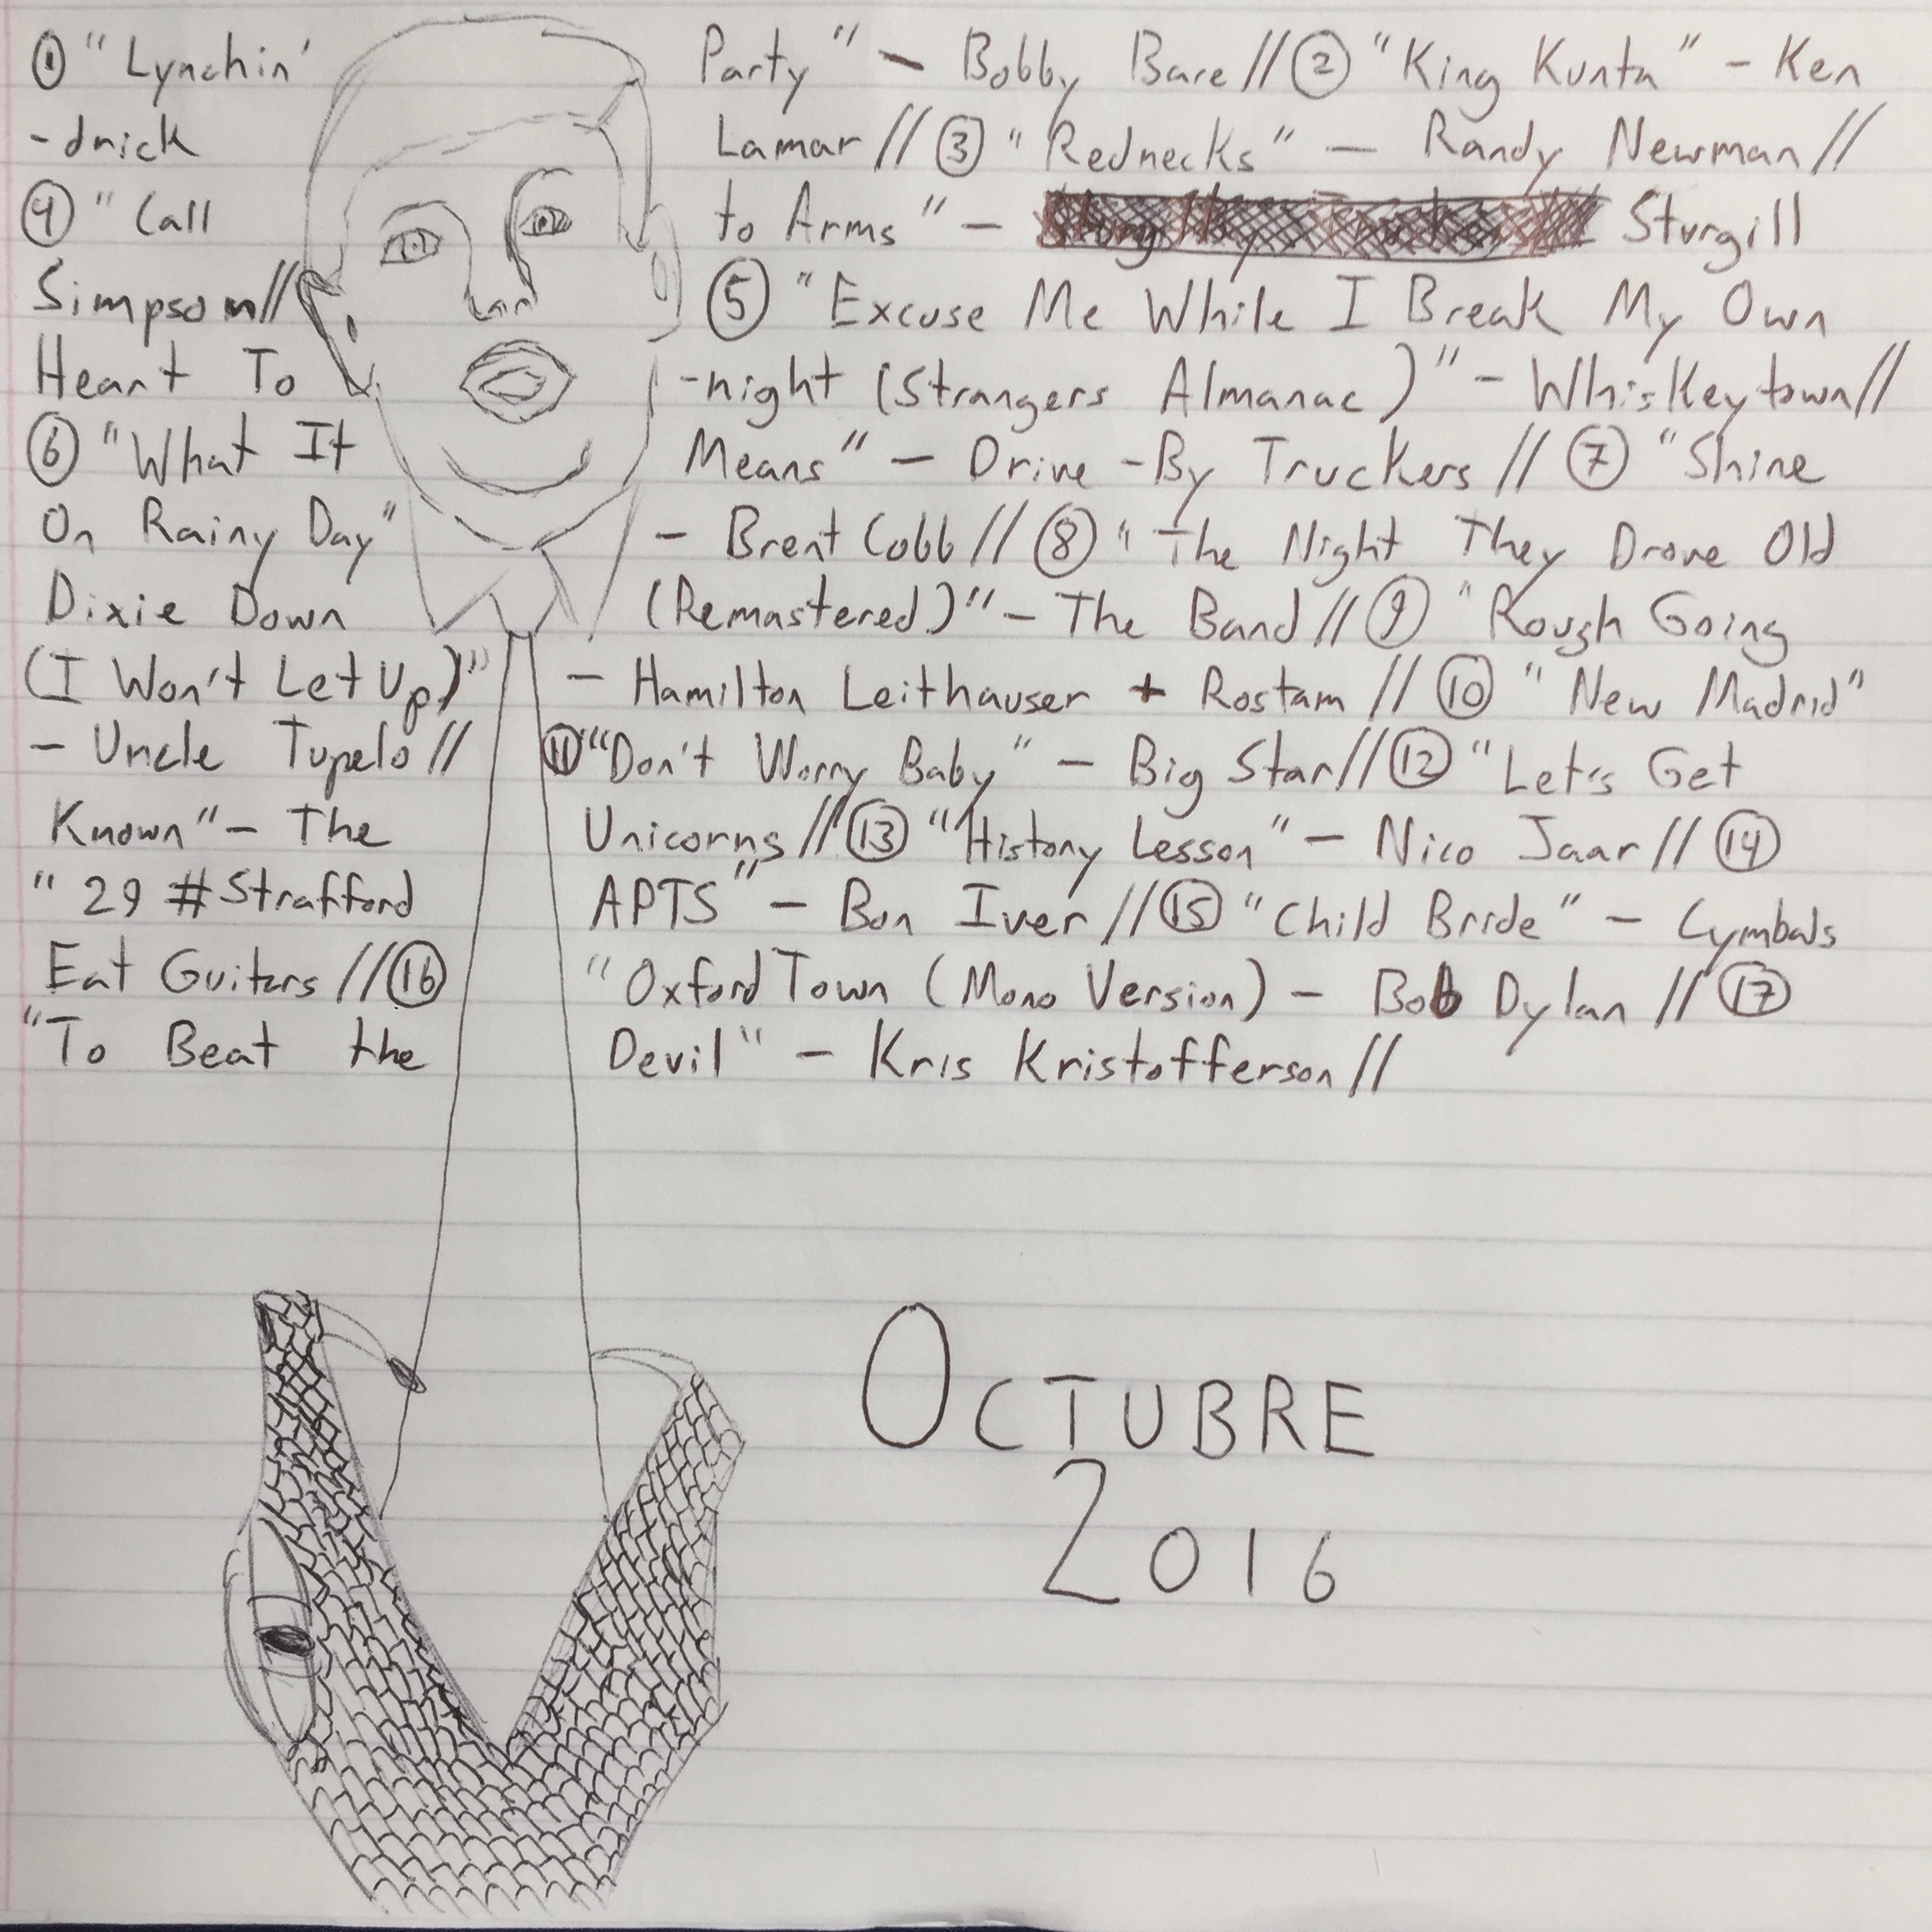 ① "Lynchin' Party" - Bobby Bare // ② "King Kunta" - Ken
-drick Lamar // ③ "Rednecks" - Randy Newman //
④ "Call to Arms" - Sturgill
Simpson // ⑤ "Excuse Me While I Break My Own
Heart To -night (Strangers Almanac)" - Whiskeytown //
⑥ "What It Means" - Drive-By Truckers // ⑦ "Shine
On Rainy Day" - Brent Cobb // ⑧ "The Night They Drove Old
Dixie Down (Remastered)" - The Band // ⑨ "Rough Going
(I Won't Let Up)" - Hamilton Leithauser + Rostam // ⑩ "New Madrid"
- Uncle Tupelo // ⑪ "Don't Worry Baby" - Big Star // ⑫ "Let's Get
Known" - The Unicorns // ⑬ "History Lesson" - Nico Jaar // ⑭
"29 #Strafford APTS" - Bon Iver // ⑮ "Child Bride" - Cymbals
Eat Guitars // ⑯ "Oxford Town (Mono Version) - Bob Dylan // ⑰
"To Beat the Devil" - Kris Kristofferson //
OCTUBRE
2016